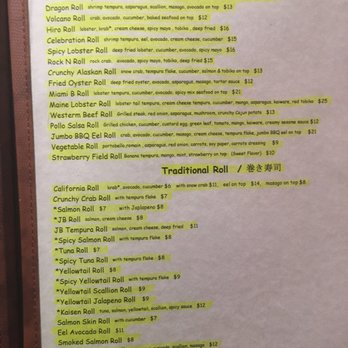 Dragon Roll shrimp tempura, asparagus, scallion, masago, avocado on top $13
Volcano Roll crab, avocado, cucumber, baked seafood on top $12
Hiro Roll lobster, krab*, cream cheese, spicy mayo, tobiko, deep fried $16
Celebration Roll shrimp tempura, eel, avocado, cream cheese, cucumber $15
Spicy Lobster Roll deep fried lobster, cucumber, avocado, spicy mayo $16
Rock N Roll rock crab, avocado, spicy mayo, tobiko, deep fried $15
Crunchy Alaskan Roll snow crab, tempura flake, cucumber, salmon & tobiko on top $13
Fried Oyster Roll deep fried oyster, avocado, asparagus, masago, tartar sauce $12
Miami B Roll lobster tempura, cucumber, avocado, spicy mix seafood on top $21
Maine Lobster Roll lobster tail tempura, cream cheese, tempura flake, cucumber, mango, asparagus, kaiware, red tobiko $25
Western Beef Roll Grilled steak, red onion, asparagus, mushroom, crunchy Cajun potato $13
Pollo Salsa Roll Grilled chicken, cucumber, egg, green leaf, tomato, mango, kaiware, creamy sesame sauce $12
Jumbo BBQ Eel Roll crab, avocado, cucumber, masago, cream cheese, tempura flake, jumbo BBQ eel on top $21
Vegetable Roll portobello, asparagus, red onion, carrots, soy paper, carrots dressing $9
Strawberry Field Roll Banana tempura, mango, mint, strawberry on top (Sweet Flavor) $10
Traditional Roll / 巻き寿司
California Roll krab*, avocado, cucumber $6 with snow crab $11, eel on top $14, masago on top $8
Crunchy Crab Roll with tempura flake $7
*Salmon Roll $7 with Jalapeno $8
*JB Roll salmon, cream cheese $8
JB Tempura Roll salmon, cream cheese, deep fried $11
*Spicy Salmon Roll with tempura flake $8
*Tuna Roll $7
*Spicy Tuna Roll with tempura flake $8
*Yellowtail Roll $8
*Spicy Yellowtail Roll with tempura flake $9
*Yellowtail Scallion Roll $9
*Yellowtail Jalapeno Roll $9
*Kaisen Roll tuna, salmon, yellowtail, scallion, spicy sauce $12
Salmon Skin Roll with cucumber $7
Eel Avocado Roll $11
Smoked Salmon Roll $8
scallion, masago $12